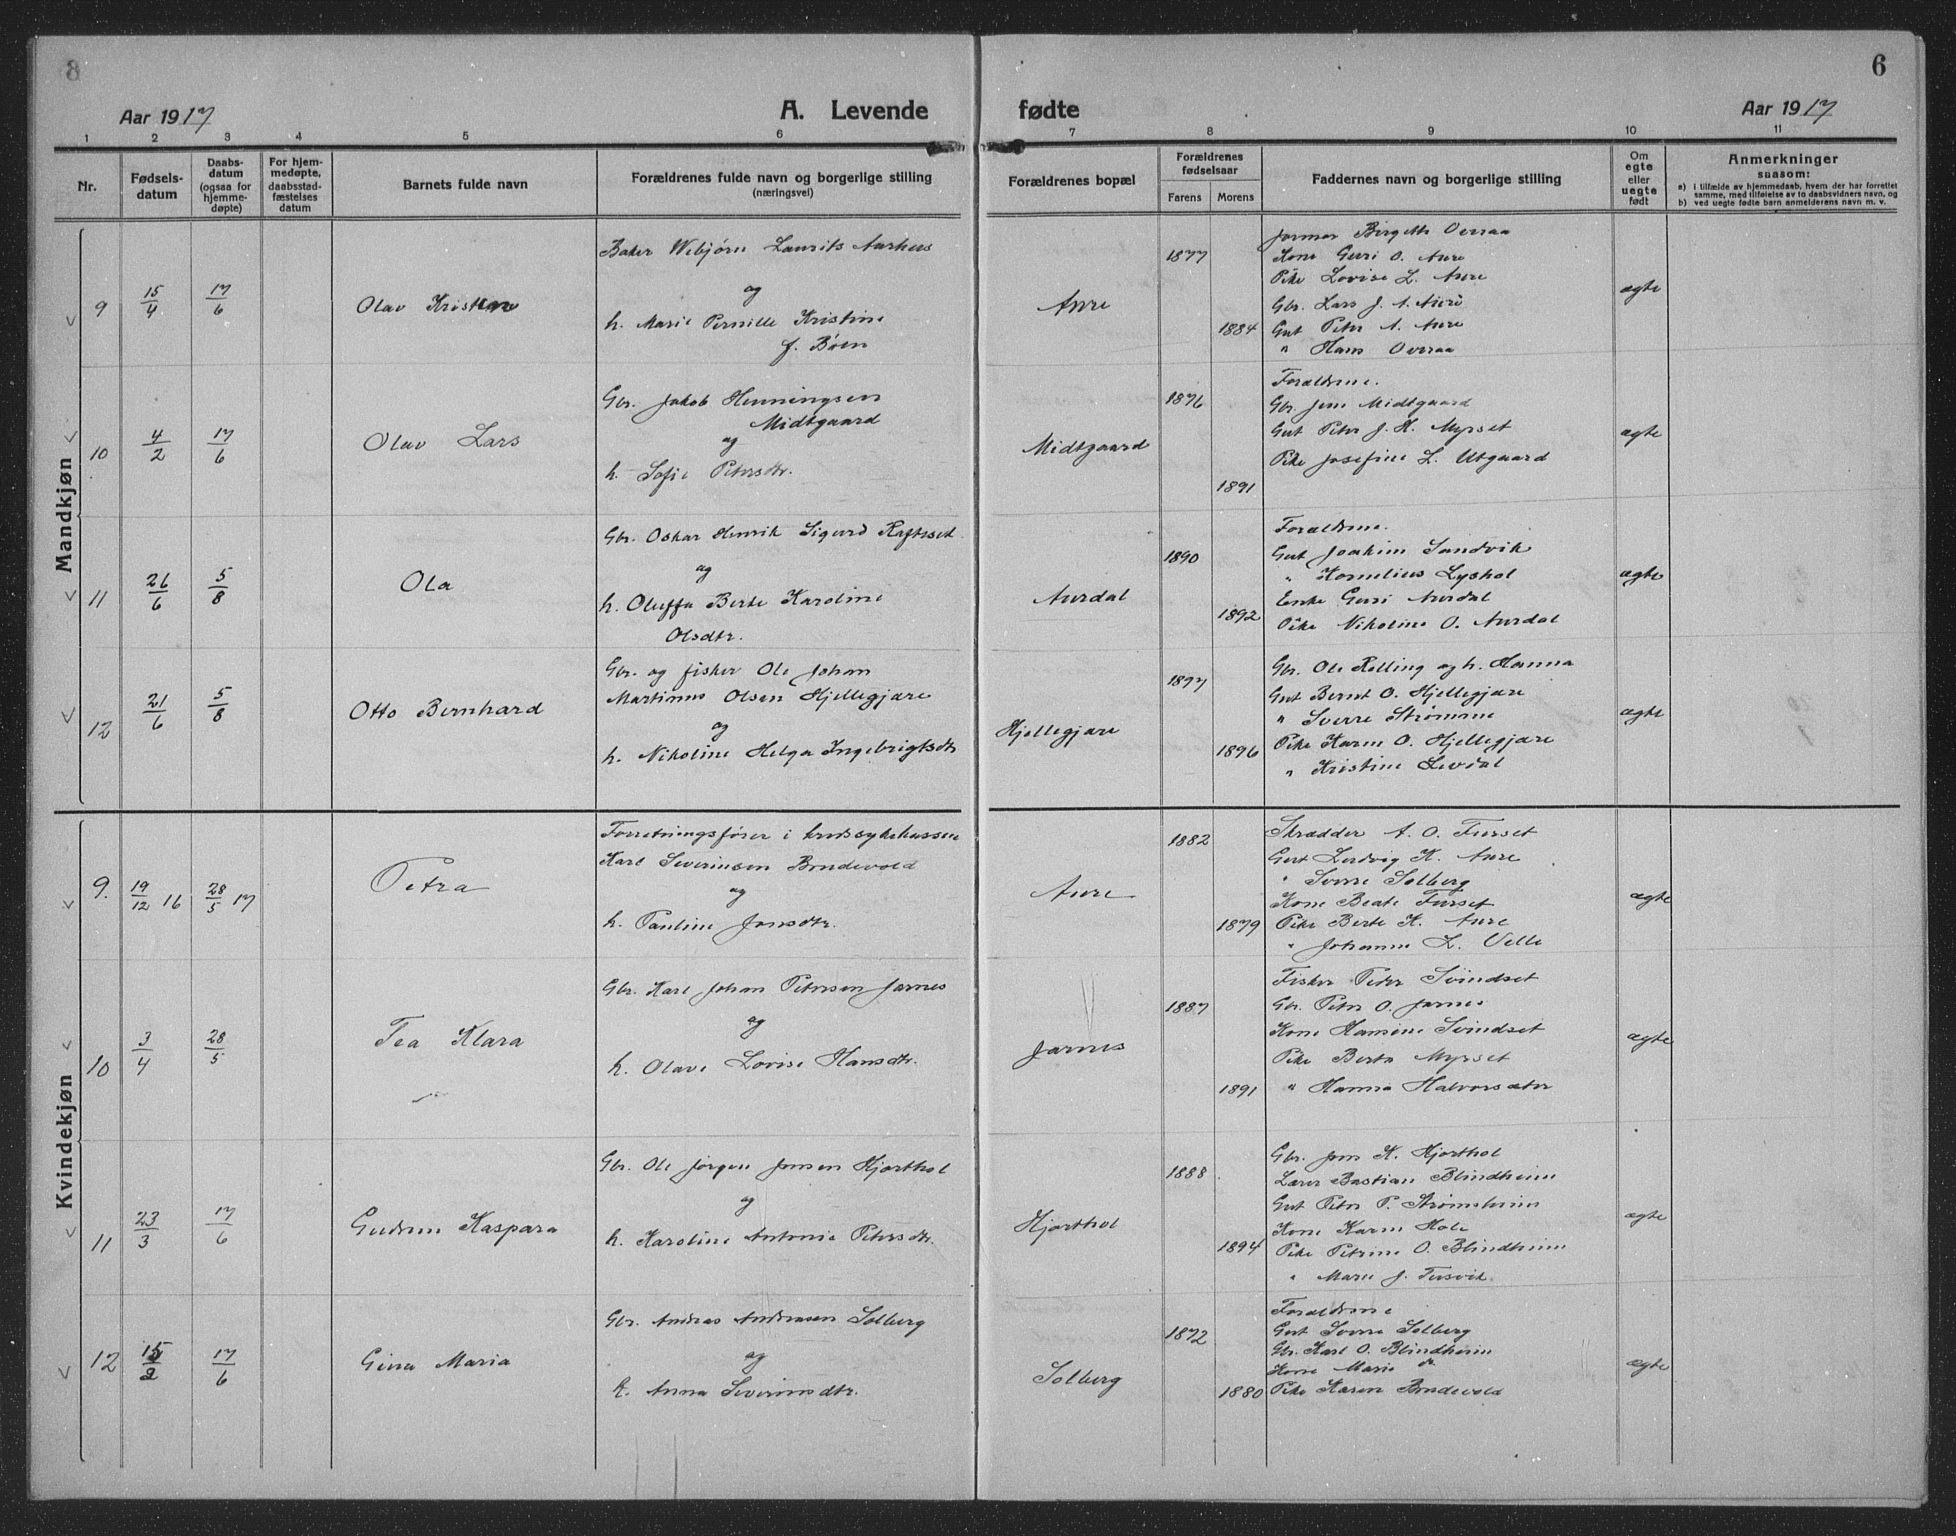 8
6
Aar 1917
A. Levende
fødte
Aar 1917
1 2 3 4 5 6 7 8 9 10 11
Nr.
Fødsels-
datum
Daabs-
datum
(ogsaa for
hjemme-
døpte)
For hjem-
medøpte,
daabsstad-
fæstelses
datum
Barnets fulde navn
Forældrenes fulde navn og borgerlige stilling
(næringsvei)
Forældrenes bopæl
Forældrenes
fødselsaar
Farens Morens
Faddernes navn og borgerlige stilling
Om
egte
eller
uegte
født
Anmerkninger
saasom:
a) i tilfælde av hjemmedaab, hvem der har forrettet
samme, med tilføielse av to daabsvidners navn, og
b) ved uegte fødte barn anmelderens navn m. v.
Mandkjøn
9 15/4 17/6
Olav Kristian
Baker Webjørn Laurits Aarhus
og
h. Marie Pernille Kristine
f. Bøen
Aure
1877
1884
Jormor Birgitte Overaa
Kone Guri O. Aure
Pike Lovise L. Aure
Gbr. Lars J. A. Aure
Gut Peter A. Aure
" Hans Overaa
ægte
10 4/2 17/6
Olav Lars
Gbr. Jakob Henningsen
Midtgaard
og
h. Sofie Petersdtr.
Midtgaard
1876
1891
Forældrene.
Gbr Jens Midtgaard
Gut Peter J. H. Myrset
Pike Josefine L. Utgaard
ægte
11 26/6 5/8
Ola
Gbr. Oskar Henrik Sigurd Raftset
og
h. Oluffa Berte Karoline
Olsdtr.
Aurdal
1890
1892
Forældrene.
Gut Joakim Sandvik
" Kornelius Lyshol
Enke Guri Aurdal
Pike Nikoline O. Aurdal
ægte
12 21/6 5/8
Otto Bernhard
Gbr. og fisker Ole Johan
Martinus Olsen Hjellegjære
og
h. Nikoline Helga Ingebrigtsdtr
Hjellegjære
1897
1896
Gbr. Ole Relling og h. Hanna
Gut Bernt O. Hjellegjære
" Sverre Strømme
Pike Karen O. Hjellegjære
" Kristine Levdal
ægte
Kvindekjøn
9. 19/12 16 28/5 17
Petra
Forretningsfører i kredssykekassen
Karl Severinsen Brudevold
og
h. Pauline Jonsdtr.
Aure
1882
1879
Skrædder A. O. Furset
Gut Ludvig K. Aure
" Sverre Solberg
Kone Beate Furset
Pike Berte K. Aure
" Johanne L. Velle
ægte
10 3/4 28/5
Tea Klara
Gbr. Karl Johan Petersen Jarnes
og
h. Olave Lovise Hansdtr.
Jarnes
1887
1891
Fisker Peter Svindset
Gbr. Peter O. Jarnes
Kone Hansine Svindset
Pike Berta Myrset
" Hanna Halvorsæter
ægte
11 23/3 17/6
Gudrun Kaspara
Gbr. Ole Jørgen Jensen Hjorthol
og
h. Karoline Antonie Petersdtr.
Hjorthol
1888
1894
Gbr. Jens K. Hjorthol
Lærer Bastian Blindheim
Gut Peter P. Strømsheim
Kone Karen Hole
Pike Petrine O. Blindheim
" Marie J. Tusvik
ægte
12 15/2 17/6
Gina Maria
Gbr. Andreas Andreasen Solberg
og
h. Anna Severinsdtr.
Solberg
1872
1880
Forældrene
Gut Sverre Solberg
Gbr. Karl O. Blindheim
Kone Marie do
Pike Karen Brudevold
ægte